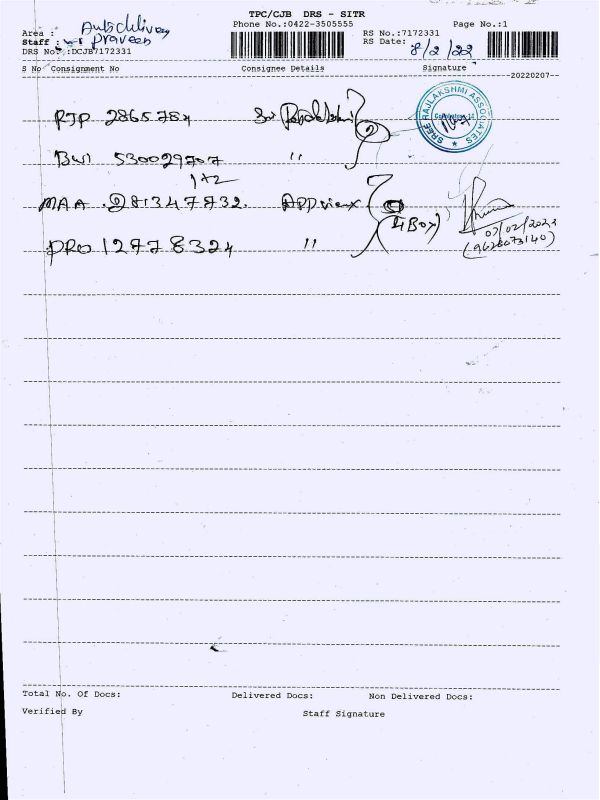 TPC/CJB DRS - SITR
Phone No.:0422-3505555 Page No.:1
Area :
Staff : Praveen
DRS No :DCJB7172331
RS No.:7172331
RS Date: 8/2/22
S No Consignment No Consignee Details Signature
20220207
RJP 2865784
SREE RAJLAKSHMI ASSOCIATES
Coimbatore
BWI 530029707 "
1+2
MAA 281347832.
(4 Box)
07/02/2022
(9626073140)
PRO 12778324 "
Total No. Of Docs: Delivered Docs: Non Delivered Docs:
Verified By Staff Signature